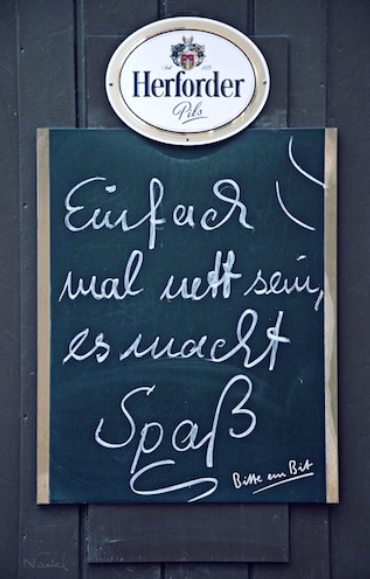 Herforder
Pils
Einfach
mal nett sein,
es macht
Spaß
Bitte ein Bit